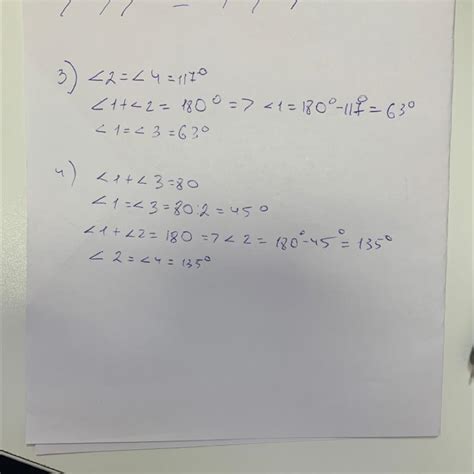 3) ∠2=∠4=117°
∠1+∠2= 180° => ∠1=180°-117°=63°
∠1=∠3=63°
4) ∠1+∠3=80
∠1=∠3=80:2=45°
∠1+∠2=180=>∠2=180°-45°=135°
∠2=∠4=135°